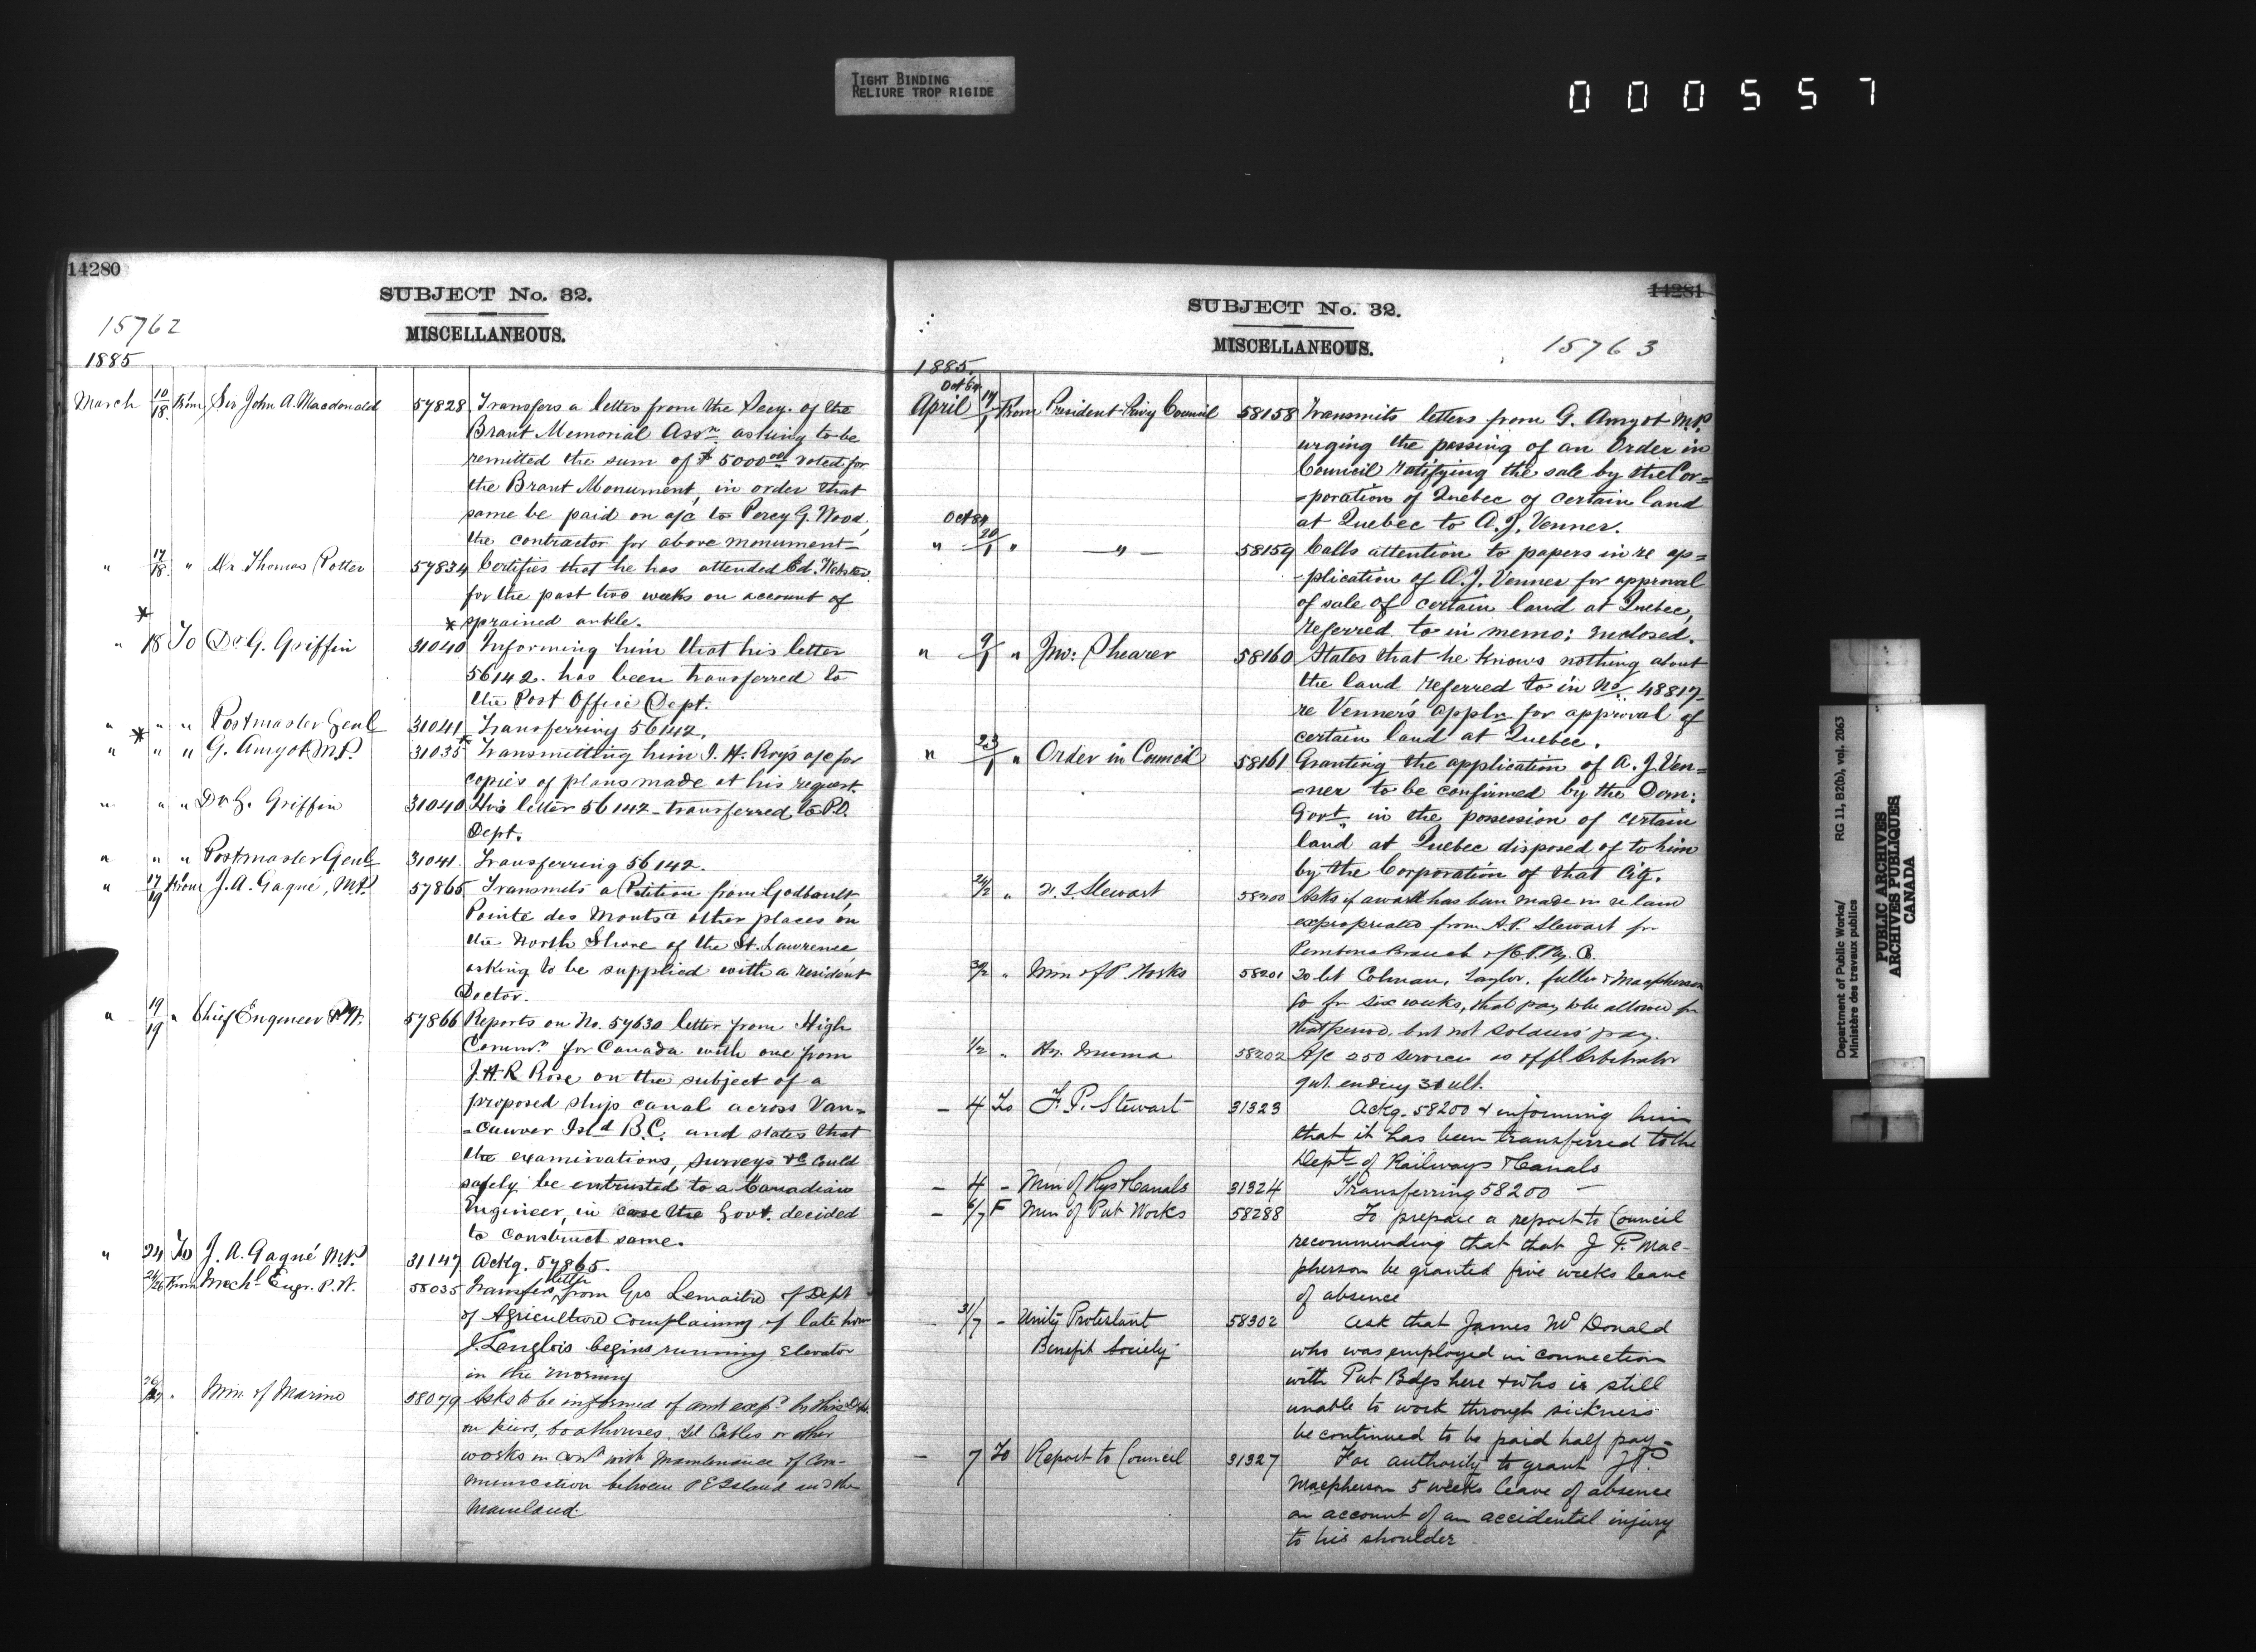 TIGHT BINDING
RELIURE TROP RIGIDE
000557
14280
SUBJECT No. 32.
15762
MISCELLANEOUS.
1885
March 10/18 From Sir John A. Macdonald 57828 Transfers a letter from the Secy. of the
Brant Memorial Assn. asking to be
remitted the sum of $5000 00 voted for
the Brant Monument, in order that
same be paid on a/c to Percy G. Wood,
the contractor for above monument
" 17/18 " Dr. Thomas Potter 57834 Certifies that he has attended Ed. Webster
for the past two weeks on account of
* sprained ankle.
* " 18 To Dr G. Griffin 31040 Informing him that his letter
56142 has been transferred to
the Post Office Dept.
" " " Postmaster Genl 31041 Transferring 56142.
* " " " G. Amyot M.P. 31035 * Transmitting him J. H. Roy's a/c for
copies of plans made at his request.
" " " Dr G. Griffin 31040 His letter 56142 transferred to P.O.
Dept.
" " " Postmaster Genl 31041 Transferring 56142.
" 17/19 From J. A. Gagné, M.P. 57865 Transmits a Petition from Godbault,
Pointe des Monts & other places on
the North Shore of the St. Lawrence
asking to be supplied with a resident
Doctor.
" 19/19 " Chief Engineer P.W. 57866 Reports on No. 57630 letter from High
Commr. for Canada with one from
J. H. R Rose on the subject of a
proposed ship canal across Van=
=couver Isld B.C. and states that
the examinations, surveys &c could
safely be entrusted to a Canadian
Engineer, in case the Govt. decided
to construct same.
" 24 To J. A. Gagné M.P. 31147 Ackg. 57865.
From Mechl Engr. P.W. 58035 Transfers letter from Geo Lemaitre of Dept
of Agriculture complaining of late hour
J. Langlois begins running Elevator
in the morning
" Min. of Marine 58079 Asks to be informed of amt expd by this Dept.
on piers, boathouses, Tel Cables or other
works in conn with maintenance of Com-
munication between P E Island and the
Mainland.
14281
SUBJECT No. 32.
MISCELLANEOUS.
15763
1885.
Oct 84
April 17/1 From President Privy Council 58158 Transmits letters from G. Amyot M.P.
urging the passing of an Order in
Council ratifying the sale by the Cor=
=poration of Quebec of certain land
at Quebec to A. J. Venner.
Oct 84
" 20/1 " " 58159 Calls attention to papers in re ap=
=plication of A. J. Venner for approval
of sale of certain land at Quebec,
referred to in memo: enclosed.
" 9/1 " Jno: Shearer 58160 States that he knows nothing about
the land referred to in No. 48817
re Venner's appln for approval of
certain land at Quebec.
" 23/1 " Order in Council 58161 Granting the application of A. J. Ven=
=ner to be confirmed by the Dom:
Govt. in the possession of certain
land at Quebec disposed of to him
by the Corporation of that City.
" Stewart 58200 Asks if award has been made in re land
expropriated from A. P. Stewart for
Pembina Branch of C. P. Ry.
30/2 " Min of P. Works 58201 To let Colman, Taylor, Fuller & Macpherson
go for six weeks, that pay to be allowed for
that period, but not soldiers' pay.
1/2 " Hy. Muma 58202 A/c 250 services as offl. Arbitrator
qut. ending 31 ult.
- 4 To F. P. Stewart 31323 Ackg. 58200 & informing him
that it has been transferred to the
Dept. of Railways & Canals
- 4 - Min of Rys & Canals 31324 Transferring 58200 -
- 6/7 F Min of Pub Works 58288 To prepare a report to Council
recommending that that J P. Mac-
pherson be granted five weeks leave
of absence
- 31/7 - Unity Protestant 58302 Ask that James McDonald
Benefit Society
who was employed in connection
with Pub Bdgs here & who is still
unable to work through sickness
be continued to be paid half pay
- 7 To Report to Council 31327 For authority to grant J P.
Macpherson 5 weeks leave of absence
on account of an accidental injury
to his shoulder
Department of Public Works/ RG 11, B2(b), vol. 2063
Ministère des travaux publics
PUBLIC ARCHIVES
ARCHIVES PUBLIQUES
CANADA